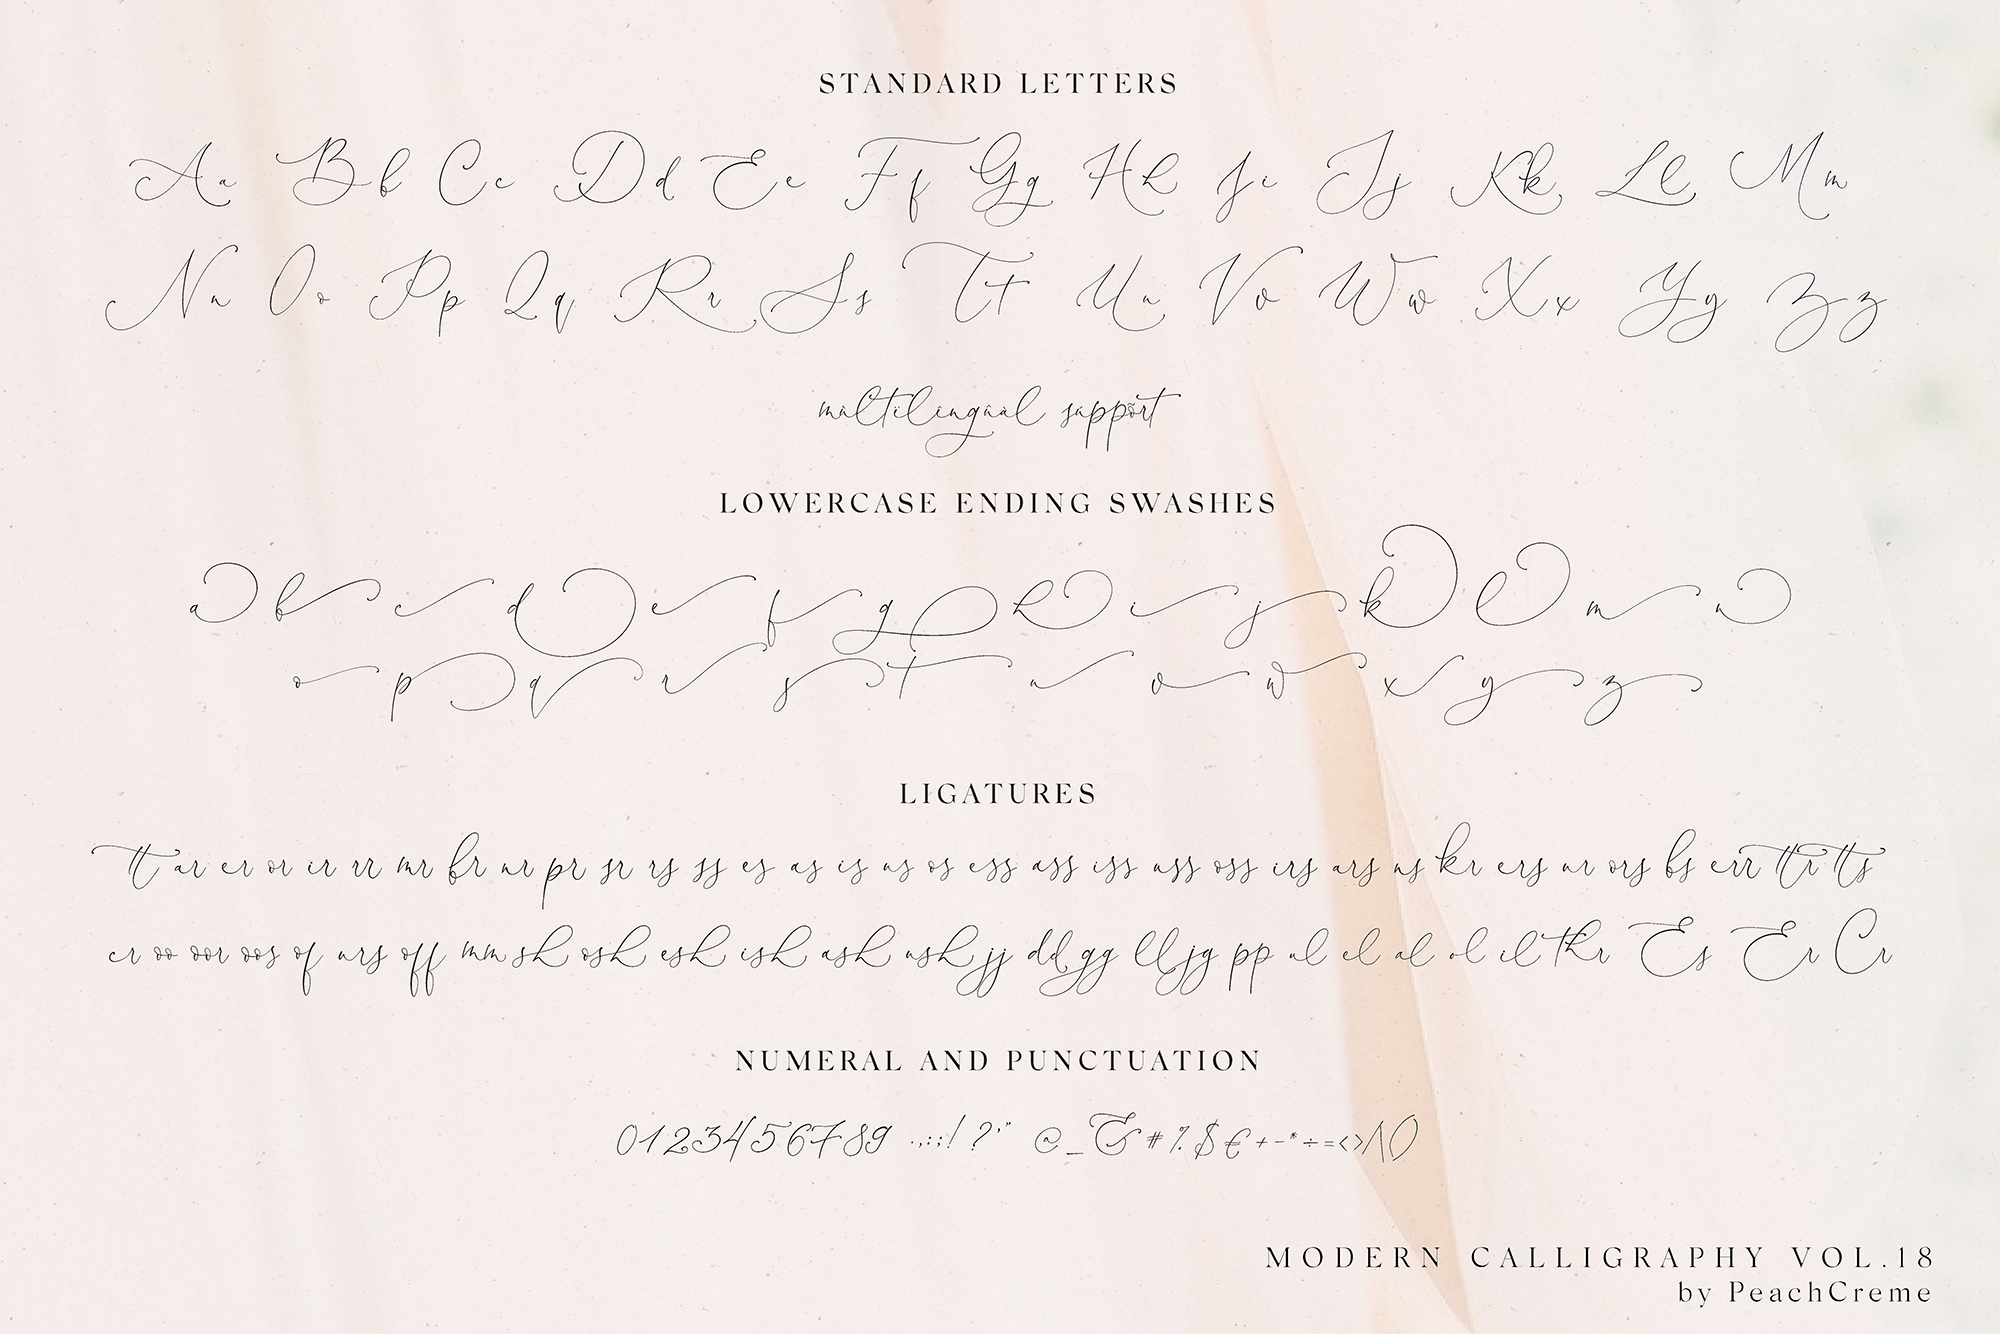 STANDARD LETTERS
Aa Bb Cc Dd Ee Ff Gg Hh Ii Jj Kk Ll Mm
Nn Oo Pp Qq Rr Ss Tt Uu Vv Ww Xx Yy Zz
multilingual support
LOWERCASE ENDING SWASHES
a b c d e f g h i j k l m n
o p q r s t u v w x y z
LIGATURES
tt ar er or ir rr mr br nr pr sr rs ss es as is us os ess ass iss uss oss irs ars ns kr ers ur ors bs err ttr tts
cr oo oor oos of urs off mm sh osh esh ish ash ush jj dd gg ll jg pp ul el al ol il thr Es Er Cr
NUMERAL AND PUNCTUATION
0123456789 .,:;! ?'" @_&#%$€+-*÷=<>/\()
MODERN CALLIGRAPHY VOL.18
by PeachCreme